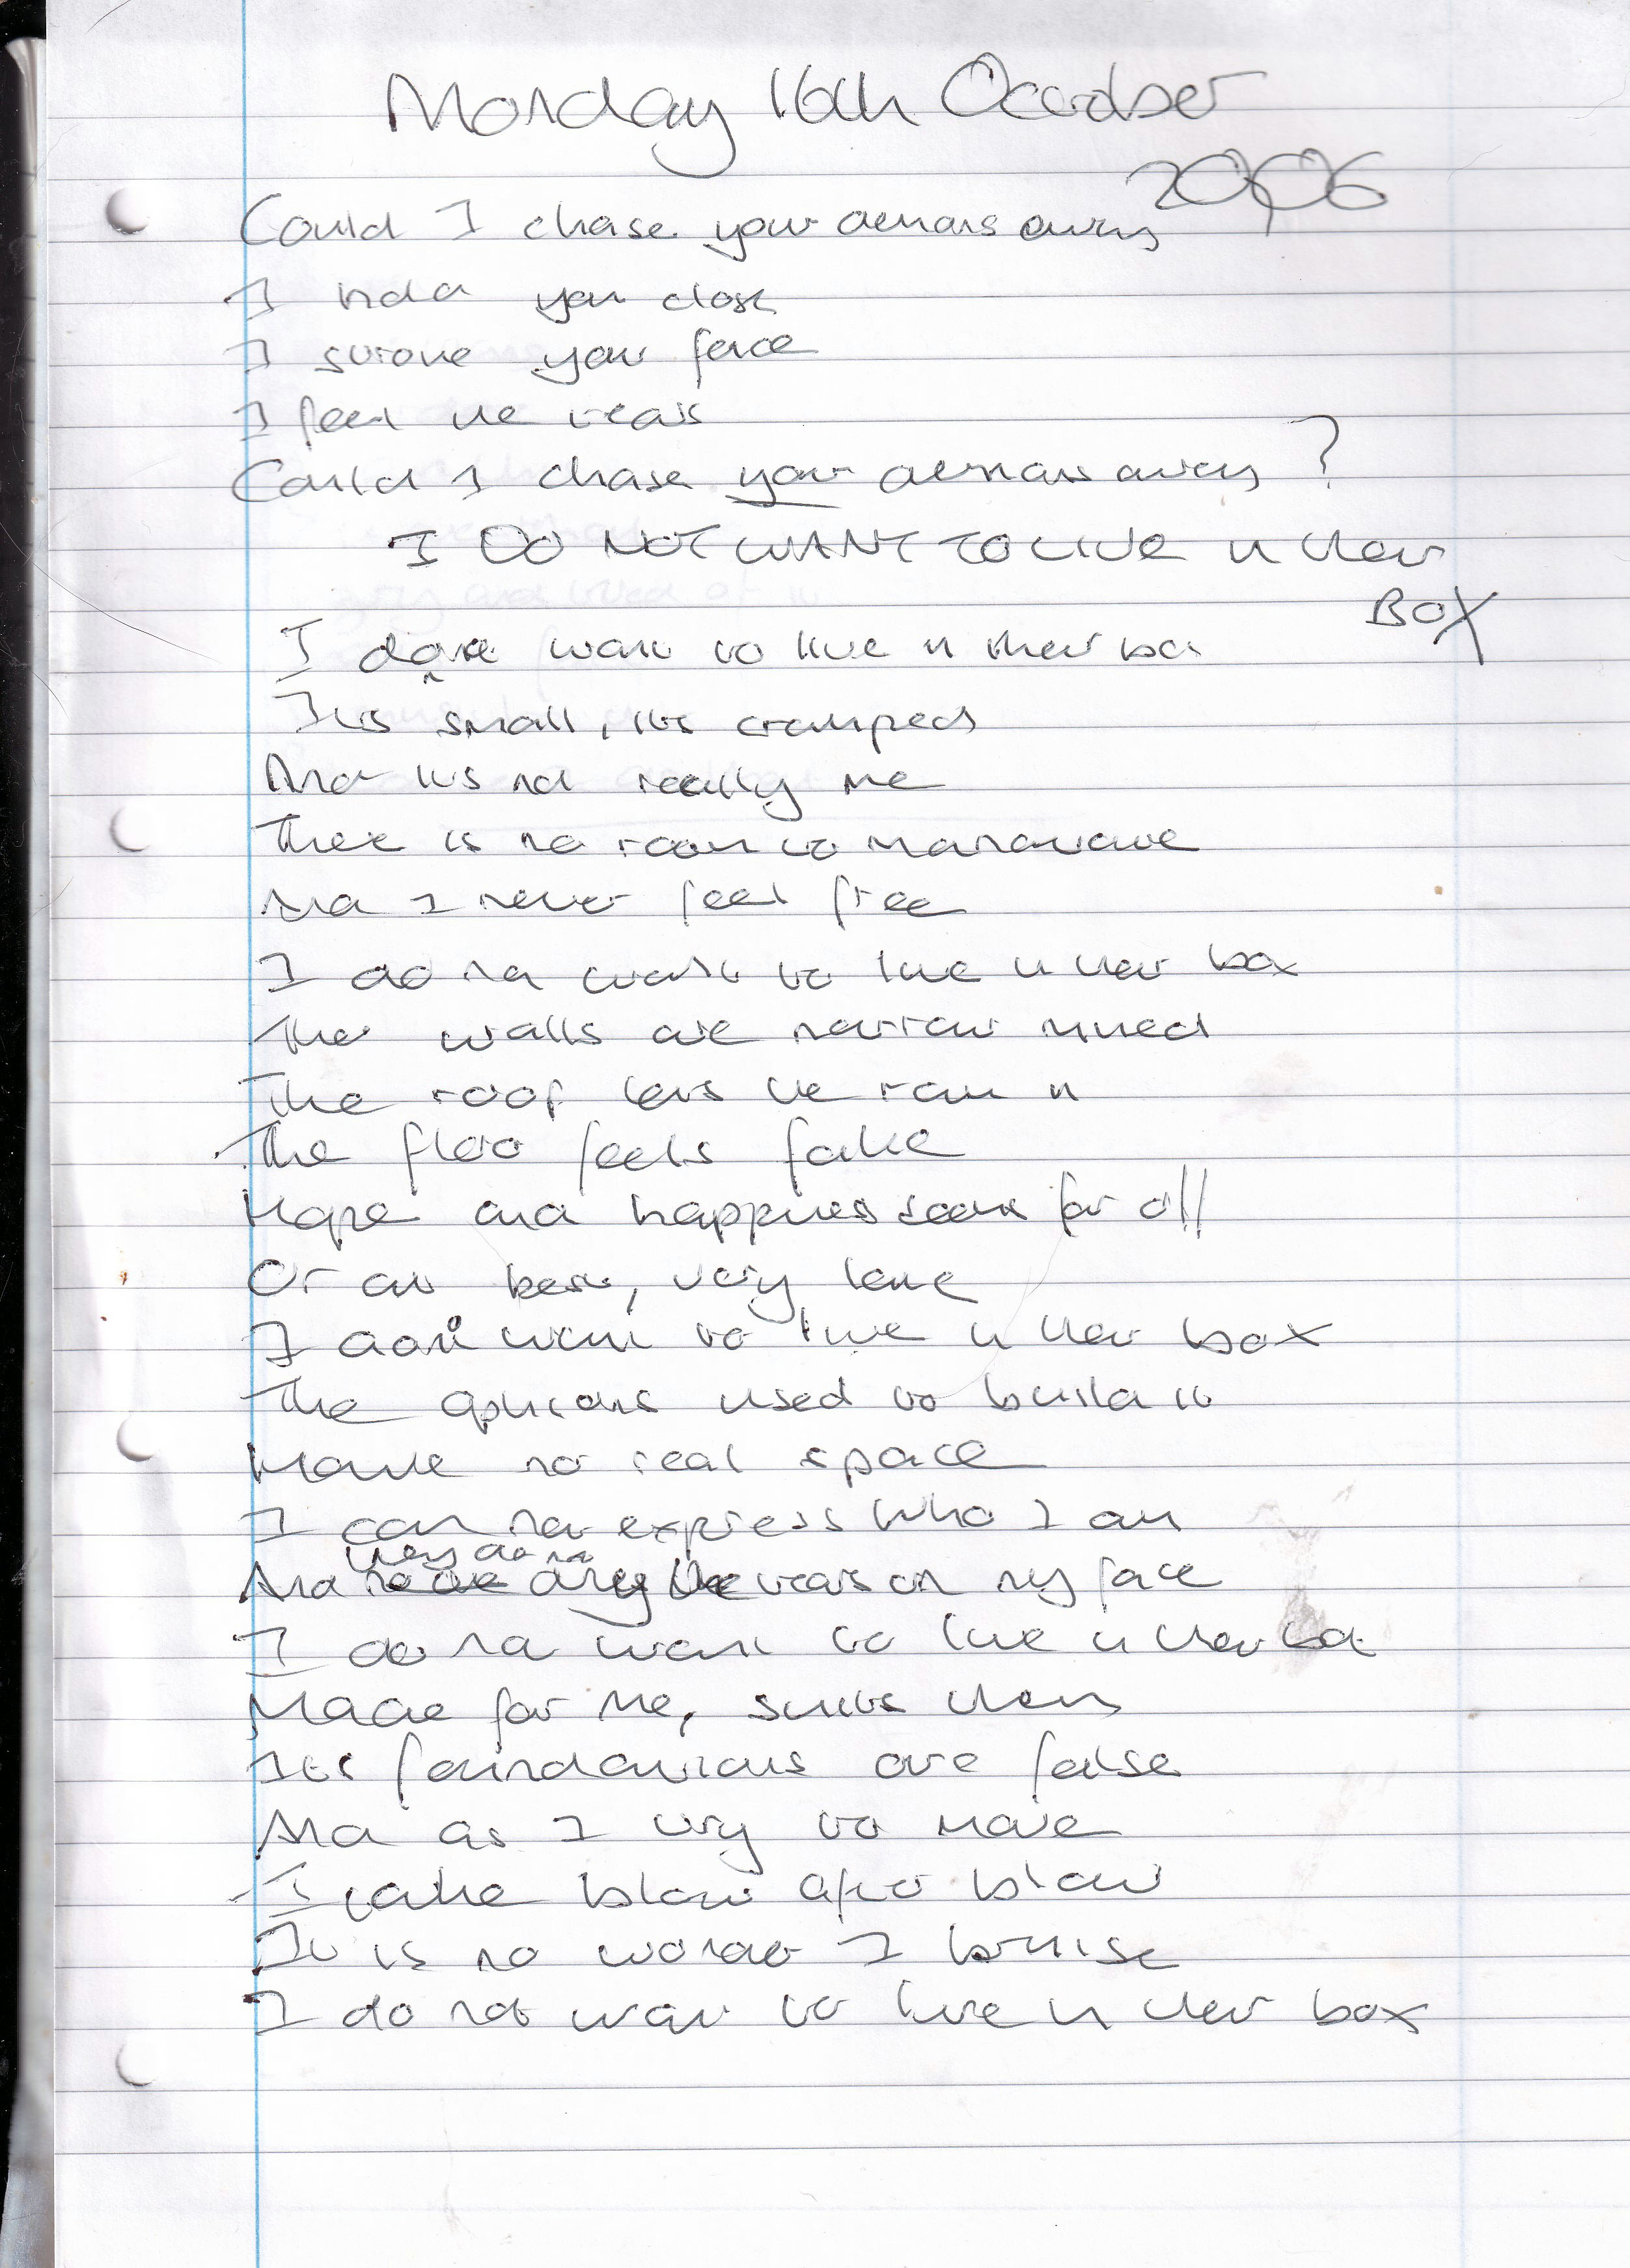 Monday 16th October
2006
Could I chase your demons away
I hold you close
I stroke your face
I feel the tears
Could I chase your demons away?
I DO NOT WANT TO LIVE in their
BOX
I dont want to live in their box
Its small, its cramped
And its not really me
There is no room to manoeuvre
And I never feel free
I do not want to live in their box
The walls are narrow mined
The roof lets the rain in
The floor feels fake
Hope and happiness seems far off
Or at best, very late
I don't want to live in their box
The opinions used to build it
Have no real space
I can not express who I am
And they do not dry the tears on my face
I do not want to live in their box
Made for me, suits them
Its foundations are false
And as I try to move
I take blow after blow
It is no wonder I bruise
I do not want to live in their box